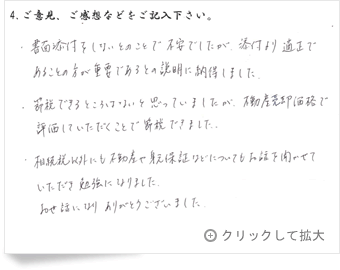 4.ご意見、ご感想などをご記入下さい。
・書面添付をしないとのことで不安でしたが、添付より適正で
あることの方が重要であるとの説明に納得しました。
・節税できるところはないと思っていましたが、不動産売却価格で
評価していただくことで節税できました。
・相続税以外にも不動産や身元保証などについてもお話を聞かせて
いただき勉強になりました。
お世話になり ありがとうございました。
クリックして拡大